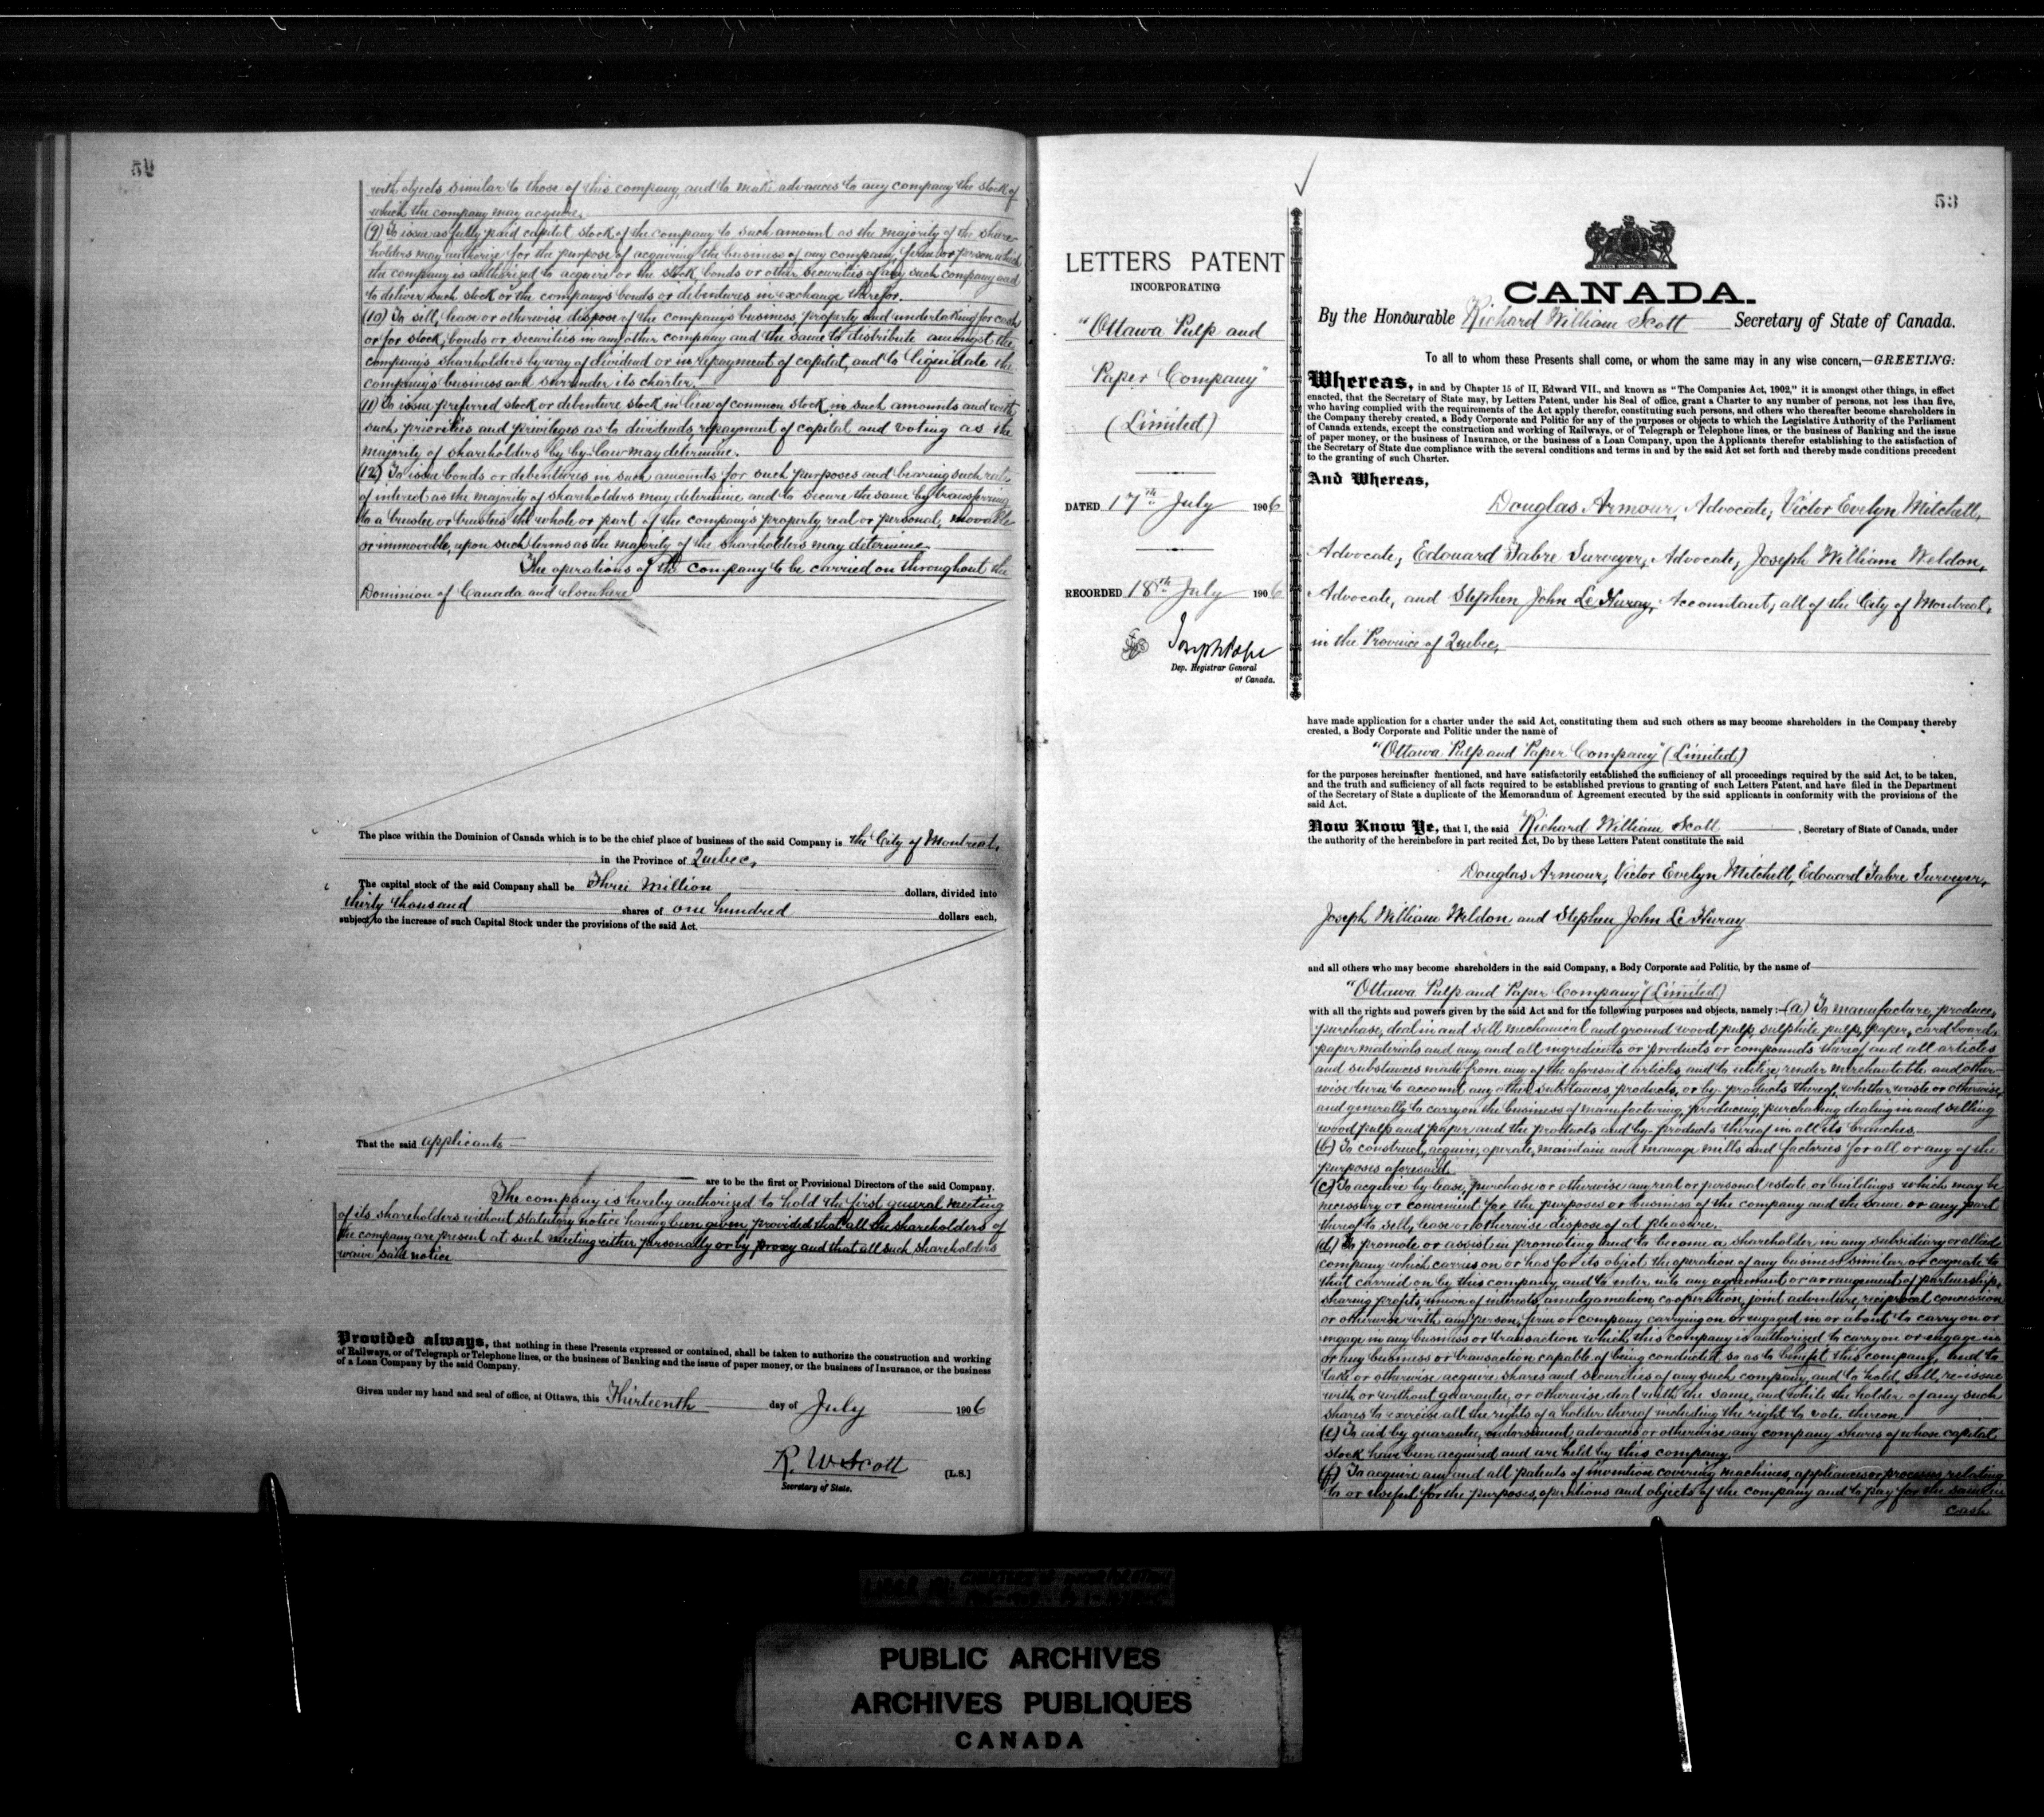 52
with objects similar to those of this company, and to make advances to any company the stock of
which the company may acquire.
(9) To issue as fully paid capital stock of the company to such amount as the majority of the share-
holders may authorize for the purpose of acquiring the business of any company, firm or person which
the company is authorized to acquire or the stock, bonds or other securities of any such company and
to deliver such stock or the company's bonds or debentures in exchange therefor.
(10) To sell, lease or otherwise dispose of the company's business, property and undertaking for cash
or for stock, bonds or securities in any other company and the same to distribute amongst the
company's shareholders by way of dividend or in repayment of capital, and to liquidate the
company's business and surrender its charter.
(11) To issue preferred stock or debenture stock in lieu of common stock in such amounts and with
such priorities and privileges as to dividends, repayment of capital and voting as the
majority of shareholders by by-law may determine.
(12) To issue bonds or debentures in such amounts for such purposes and bearing such rate
of interest as the majority of shareholders may determine and to secure the same by transferring
to a trustee or trustees the whole or part of the company's property, real or personal, movable
or immovable, upon such terms as the majority of the shareholders may determine.
The operations of the company to be carried on throughout the
Dominion of Canada and elsewhere
The place within the Dominion of Canada which is to be the chief place of business of the said Company is the City of Montreal,
in the Province of Quebec,
The capital stock of the said Company shall be Three Million dollars, divided into
thirty thousand shares of one hundred dollars each,
subject to the increase of such Capital Stock under the provisions of the said Act.
That the said applicants
are to be the first or Provisional Directors of the said Company.
The company is hereby authorized to hold the first general meeting
of its shareholders without statutory notice having been given, provided that all the shareholders of
the company are present at such meeting either personally or by proxy and that all such shareholders
waive said notice
Provided always, that nothing in these Presents expressed or contained, shall be taken to authorize the construction and working
of Railways, or of Telegraph or Telephone lines, or the business of Banking and the issue of paper money, or the business of Insurance, or the business
of a Loan Company by the said Company.
Given under my hand and seal of office, at Ottawa, this Thirteenth day of July 1906
R. W. Scott [L.S.]
Secretary of State.
53
LETTERS PATENT
INCORPORATING
"Ottawa Pulp and
Paper Company"
(Limited)
DATED 17th July 1906
RECORDED 18th July 1906
Joseph Pope
Dep. Registrar General
of Canada.
CANADA.
By the Honourable Richard William Scott Secretary of State of Canada.
To all to whom these Presents shall come, or whom the same may in any wise concern,—GREETING:
Whereas, in and by Chapter 15 of II, Edward VII., and known as "The Companies Act, 1902," it is amongst other things, in effect
enacted, that the Secretary of State may, by Letters Patent, under his Seal of office, grant a Charter to any number of persons, not less than five,
who having complied with the requirements of the Act apply therefor, constituting such persons, and others who thereafter become shareholders in
the Company thereby created, a Body Corporate and Politic for any of the purposes or objects to which the Legislative Authority of the Parliament
of Canada extends, except the construction and working of Railways, or of Telegraph or Telephone lines, or the business of Banking and the issue
of paper money, or the business of Insurance, or the business of a Loan Company, upon the Applicants therefor establishing to the satisfaction of
the Secretary of State due compliance with the several conditions and terms in and by the said Act set forth and thereby made conditions precedent
to the granting of such Charter.
And Whereas,
Douglas Armour, Advocate; Victor Evelyn Mitchell,
Advocate; Edouard Fabre Surveyer, Advocate; Joseph William Weldon,
Advocate, and Stephen John Le Huray, Accountant; all of the City of Montreal,
in the Province of Quebec,
have made application for a charter under the said Act, constituting them and such others as may become shareholders in the Company thereby
created, a Body Corporate and Politic under the name of
"Ottawa Pulp and Paper Company" (Limited)
for the purposes hereinafter mentioned, and have satisfactorily established the sufficiency of all proceedings required by the said Act, to be taken,
and the truth and sufficiency of all facts required to be established previous to granting of such Letters Patent, and have filed in the Department
of the Secretary of State a duplicate of the Memorandum of Agreement executed by the said applicants in conformity with the provisions of the
said Act.
Now Know Ye, that I, the said Richard William Scott, Secretary of State of Canada, under
the authority of the hereinbefore in part recited Act, Do by these Letters Patent constitute the said
Douglas Armour, Victor Evelyn Mitchell, Edouard Fabre Surveyer,
Joseph William Weldon and Stephen John Le Huray
and all others who may become shareholders in the said Company, a Body Corporate and Politic, by the name of
"Ottawa Pulp and Paper Company" (Limited)
with all the rights and powers given by the said Act and for the following purposes and objects, namely:—(a) To manufacture, produce,
purchase, deal in and sell mechanical and ground wood pulp, sulphite pulp, paper, card board,
paper materials and any and all ingredients or products or compounds thereof and all articles
and substances made from any of the aforesaid articles, and to utilize, render merchantable and other-
wise turn to account any other substances, products, or by-products thereof, whether waste or otherwise,
and generally to carry on the business of manufacturing, producing, purchasing, dealing in and selling
wood pulp and paper and the products and by-products thereof in all its branches.
(b) To construct, acquire, operate, maintain and manage mills and factories for all or any of the
purposes aforesaid.
(c) To acquire by lease, purchase or otherwise any real or personal estate or buildings which may be
necessary or convenient for the purposes or business of the company and the same or any part
thereof to sell, lease or otherwise dispose of at pleasure.
(d) To promote or assist in promoting and to become a shareholder in any subsidiary or allied
company which carries on or has for its object the operation of any business similar or cognate to
that carried on by this company and to enter into any agreement or arrangement of partnership,
sharing profits, union of interests, amalgamation, co-operation, joint adventure, reciprocal concession
or otherwise with any person, firm or company carrying on or engaged in or about to carry on or
engage in any business or transaction which this company is authorized to carry on or engage in
or any business or transaction capable of being conducted so as to benefit this company, and to
take or otherwise acquire shares and securities of any such company, and to hold, sell, re-issue
with or without guarantee, or otherwise deal with the same, and while the holder of any such
shares to exercise all the rights of a holder thereof including the right to vote thereon.
(e) To aid by guarantee, endorsement, advances or otherwise any company shares of whose capital
stock have been acquired and are held by this company.
(f) To acquire any and all patents of invention covering machines, appliances or processes relating
to or useful for the purposes, operations and objects of the company and to pay for the same in
cash
PUBLIC ARCHIVES
ARCHIVES PUBLIQUES
CANADA